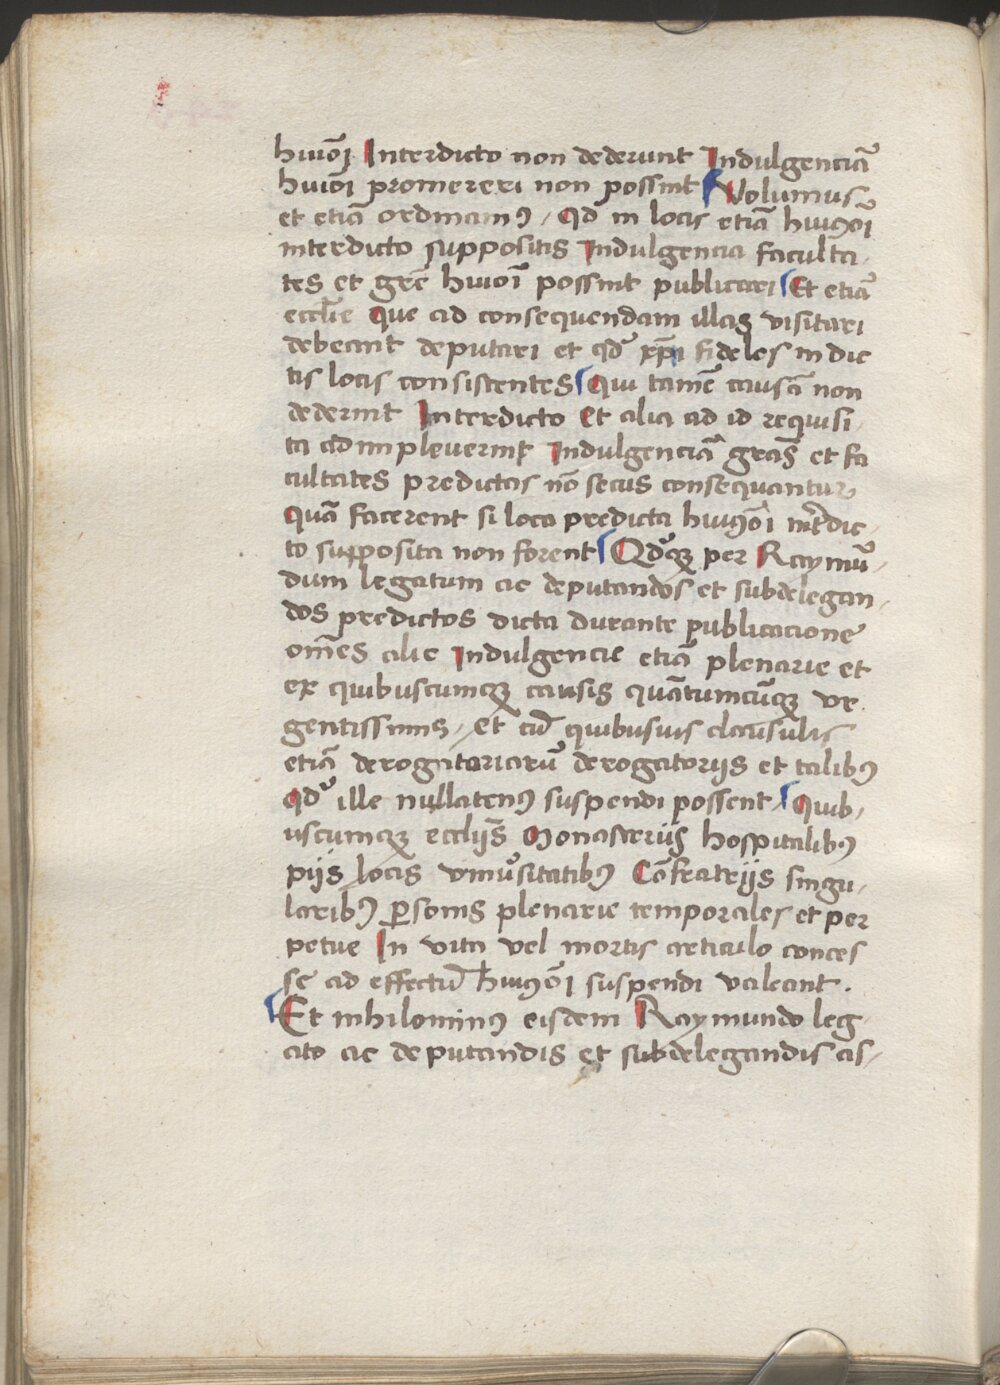 huiōi Interdicto non dederunt Indulgenciā
huiōi promereri non possint Volumus
et etiā ordinamꝰ / Qd in locis etiā huiꝰōi
interdicto suppositis Indulgencia faculta-
tes et grē huiōi possint publicari Et etiā
ecclie Que ad consequendam illas visitari
debeant deputari et qd xp̄i fideles in dic
tis locis consistentes Qui tamē causā non
dederint Interdicto Et alia ad id requisi-
ta adimpleverint Indulgenciā gras̄ et fa
cultates predictas nō secus consequantur
Quā facerent si loca predicta huiꝰōi int̄dic-
to supposita non forent Qdꝙ per Raymū-
dum legatum ac deputandos et subdelegan-
dos predictos dicta durante publicacione
om̄es alie Indulgencie etiā plenarie et
ex quibuscumqꝫ causis quātumcūqꝫ vr
gentissimis / et cū quibusvis clausulis
etiā derogatoriarū derogatorijs et talibꝰ
qd ille nullatenꝰ suspendi possent / Quib-
uscumqꝫ eccliis̄ Monasterijs hospitalibꝰ
pijs locis vniūsitatibꝰ Cōfratrijs singu-
laribꝰ ꝑsonis plenarie temporales et per
petue In vita vel mortis articulo conces
se ad effectū huiꝰōi suspendi valeant .
Et nihilominꝰ eisdem Raymundo leg-
ato ac deputandis et subdelegandis as-